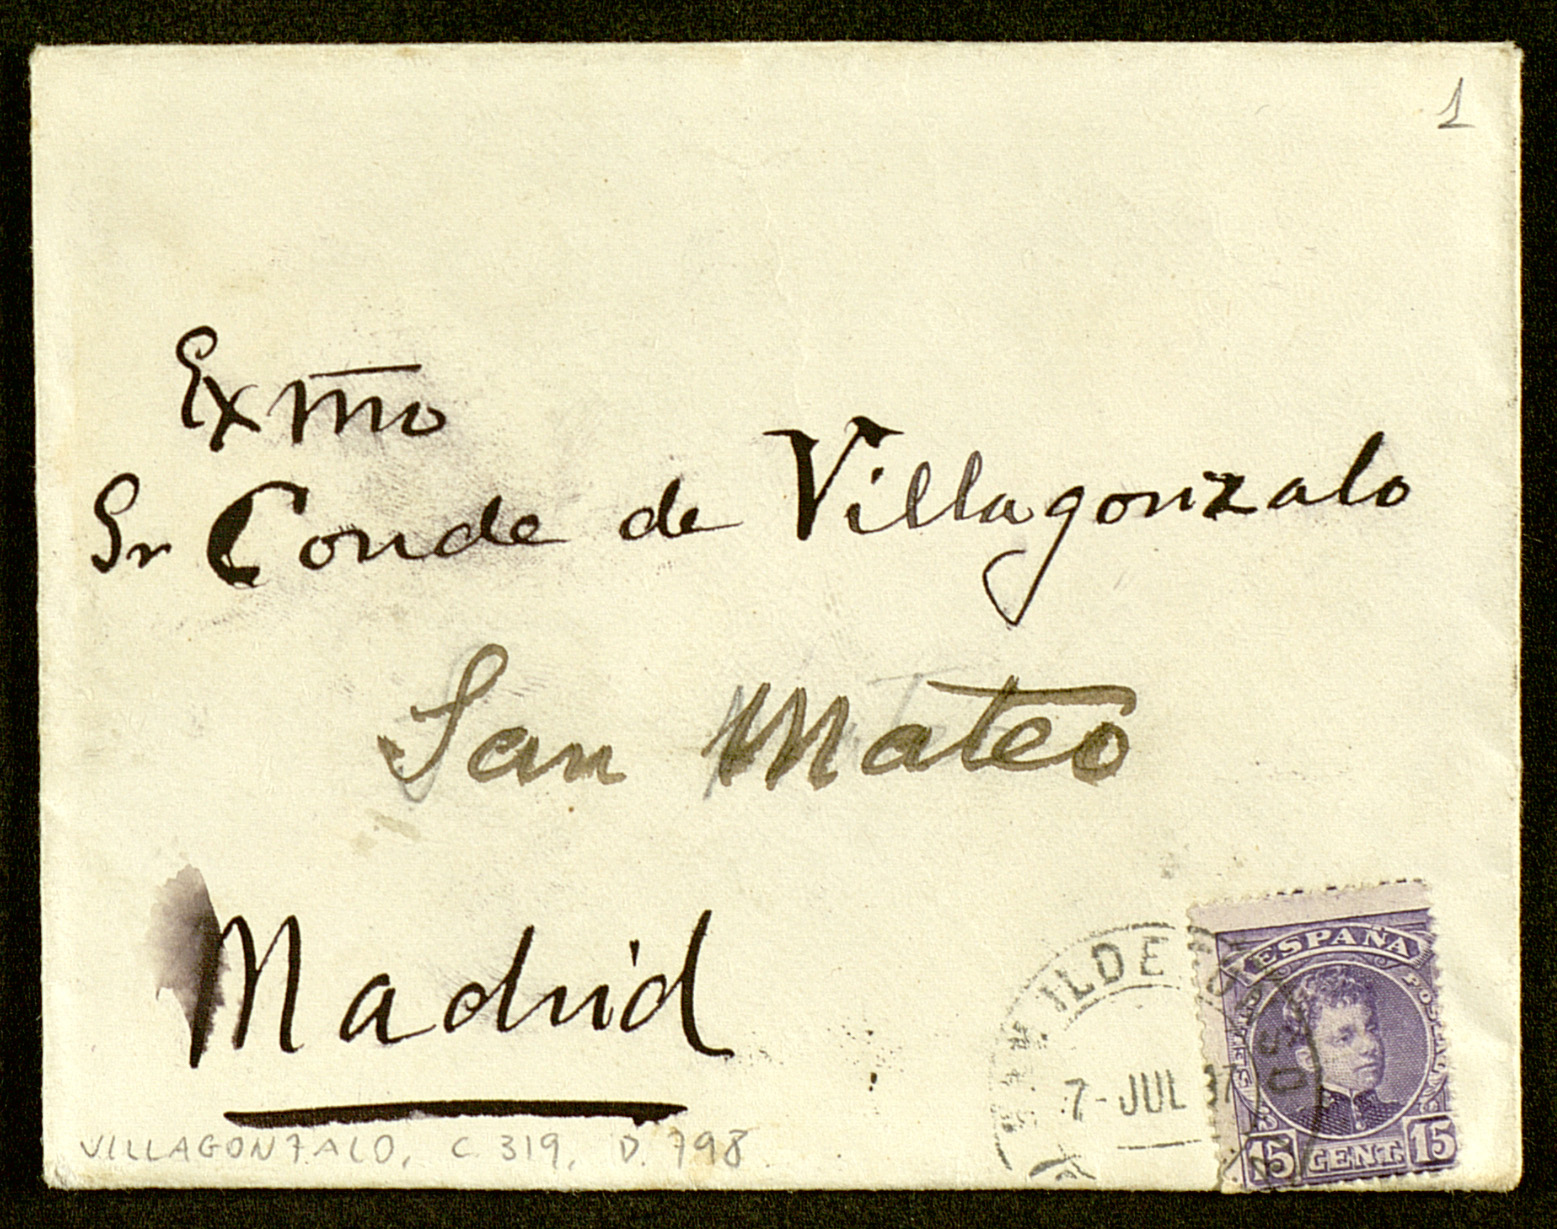 1
Exmo
Sr Conde de Villagonzalo
San Mateo
Madrid
ILDE
7-JUL 07
ESPAÑA
15 CENT. 15
VILLAGONZALO, C. 319, D. 798